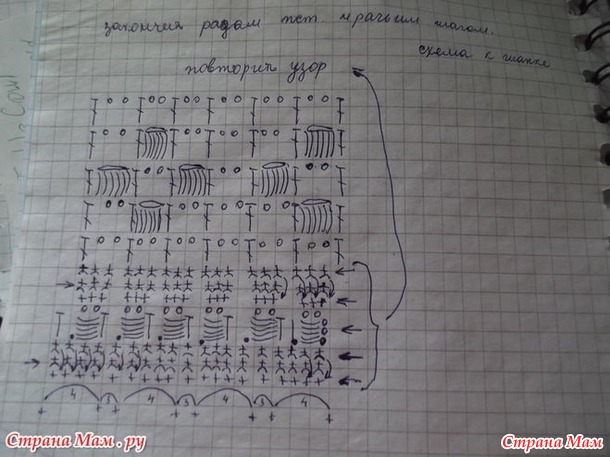 закончил рядом тст. крачым шагом.
схема к шапке
повторить узор
4 3 4 3 4 3 4
Страна Мам.ру
Страна Мам